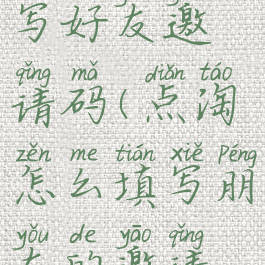 写好友邀
qǐng mǎ diǎn táo
请码(点淘
zěn me tián xiě Péng
怎么填写朋
yǒu de yāo qǐng